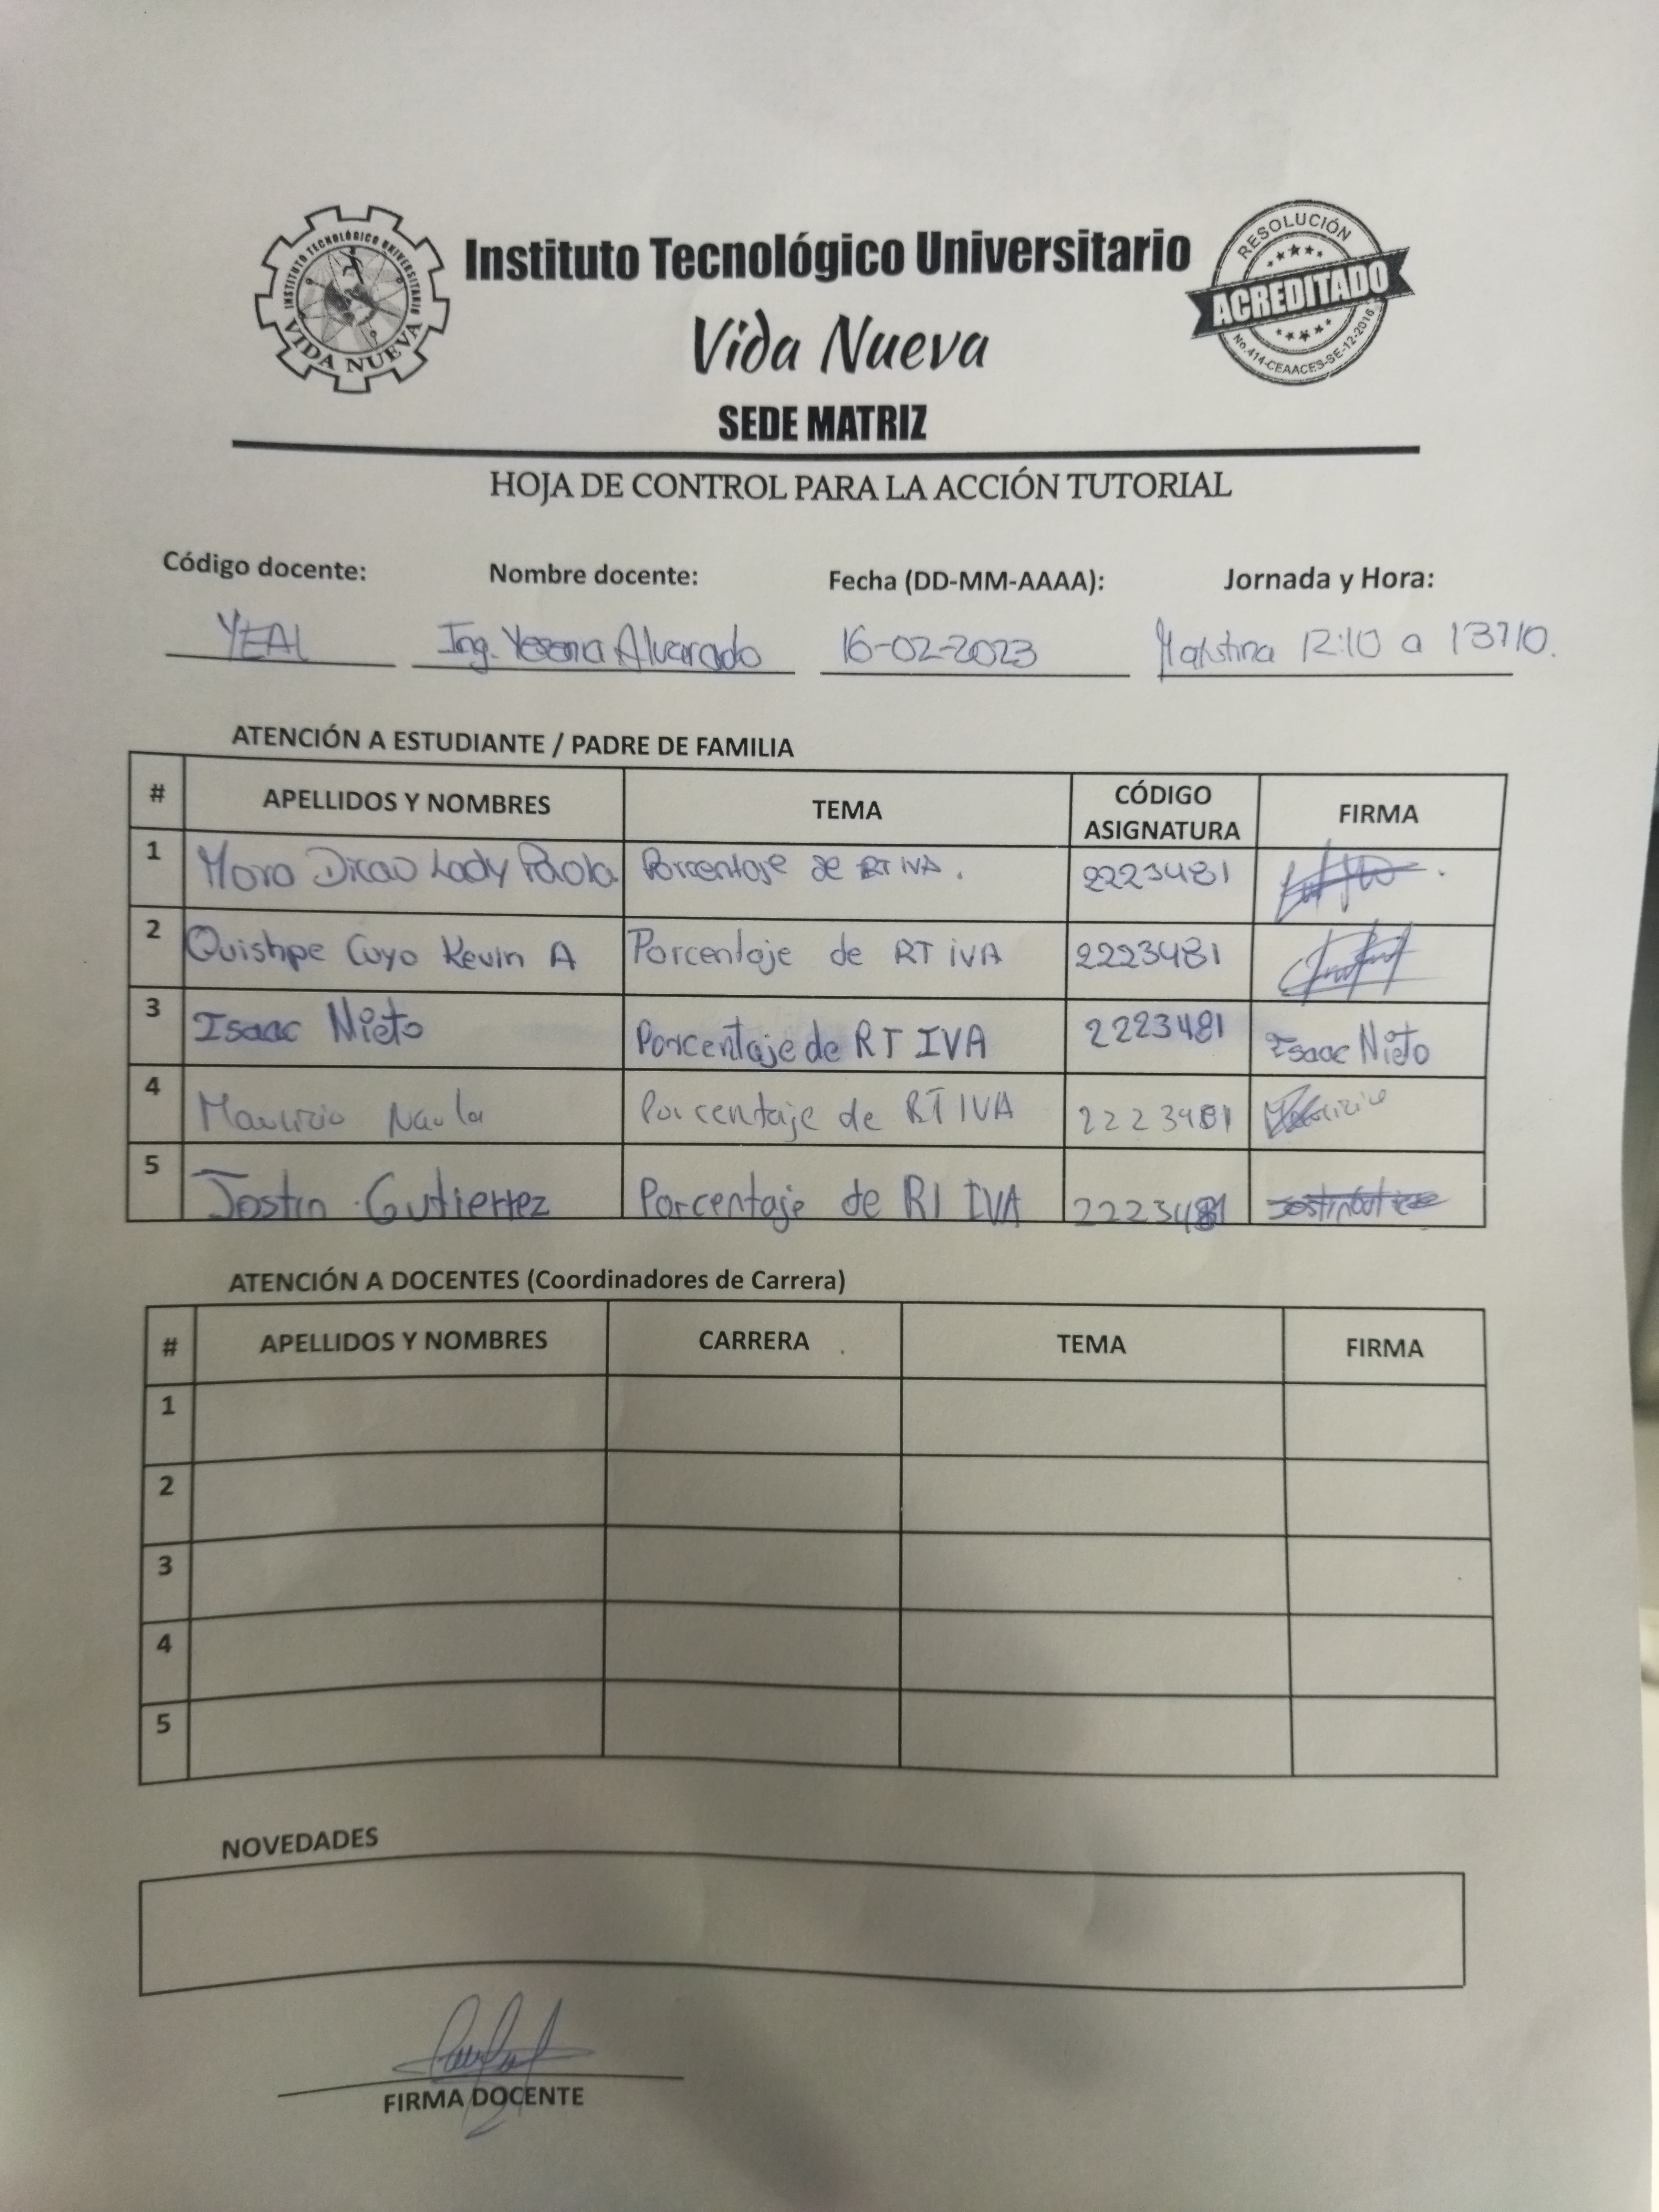 INSTITUTO TECNOLÓGICO UNIVERSITARIO
VIDA NUEVA
Instituto Tecnológico Universitario
Vida Nueva
SEDE MATRIZ
RESOLUCIÓN
ACREDITADO
No.414-CEAACES-SE-12-2016
HOJA DE CONTROL PARA LA ACCIÓN TUTORIAL
Código docente: Nombre docente: Fecha (DD-MM-AAAA): Jornada y Hora:
YEAL Ing. Yesenia Alvarado 16-02-2023 12:10 a
ATENCIÓN A ESTUDIANTE / PADRE DE FAMILIA
# APELLIDOS Y NOMBRES TEMA CÓDIGO ASIGNATURA FIRMA
1 Mora Lady Paola Porcentaje de RT IVA. 2223481
2 Quishpe Cuyo Kevin A Porcentaje de RT IVA 2223481
3 Isaac Nieto Porcentaje de RT IVA 2223481 Isaac Nieto
4 Mauricio Naula Porcentaje de RT IVA 2223481
5 Jostin Gutierrez Porcentaje de RT IVA 2223481
ATENCIÓN A DOCENTES (Coordinadores de Carrera)
# APELLIDOS Y NOMBRES CARRERA TEMA FIRMA
1
2
3
4
5
NOVEDADES
FIRMA DOCENTE